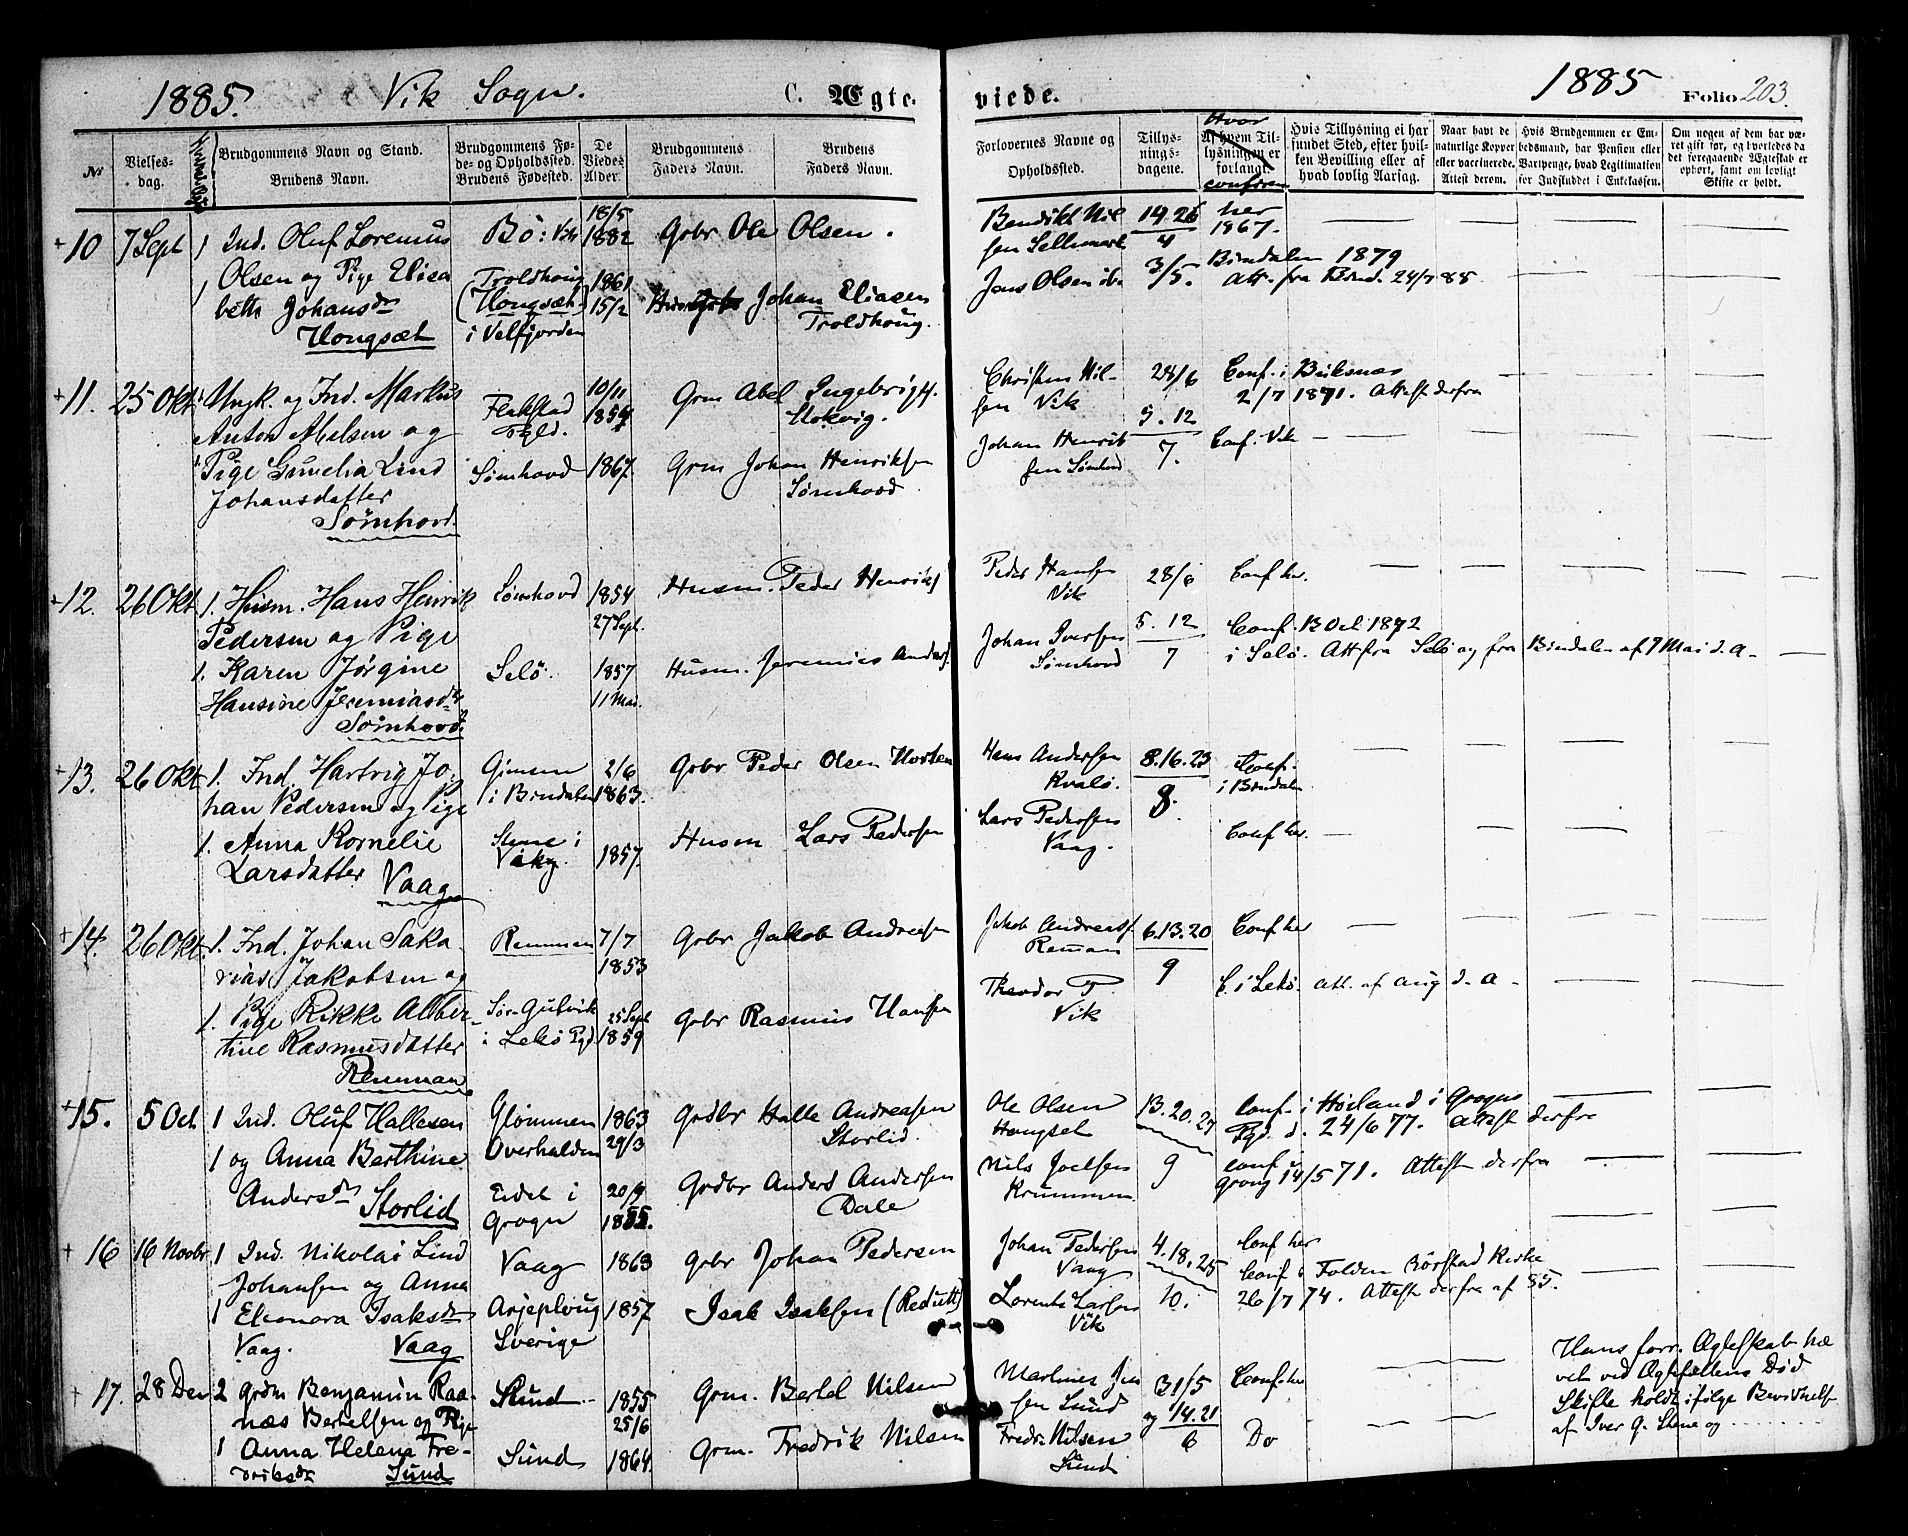 1885. Vik Sogn. C. Ægte-
viede. 1885 Folio 203.
No
Vielses-
dag.
Brudgommens Navn og Stand.
Brudens Navn.
Brudgommens Fø-
de- og Opholdssted.
Brudens Fødested.
De
Viedes
Alder.
Brudgommens
Faders Navn.
Brudens
Faders Navn.
Forlovernes Navne og
Opholdssted.
Tillys-
nings-
dagene.
Hvor
Af hvem Til-
lysningen er
forlangt.
confirm
Hvis Tillysning ei har
fundet Sted, efter hvil-
ken Bevilling eller af
hvad lovlig Aarsag.
Naar havt de
naturlige Kopper
eller vaccinerede.
Attest derom.
Hvis Brudgommen er Em-
bedsmand, har Pension eller
Vartpenge, hvad Legitimation
for Indskuddet i Enkekassen.
Om nogen af dem har væ-
ret gift før, og hvorledes da
det foregaaende Ægteskab er
ophørt, samt om lovligt
Skifte er holdt.
+ 10 7 Sept
1 Ind. Oluf Lorenius
Olsen og Pige Elisa
beth Johansdr
Hongsæt
Bø: Vik
Troldhoug
(Hongsæt)
i Velfjorden
18/5
1882
1861
15/2
Gbr Ole Olsen.
Johan Eliasen
Troldhoug.
Bendikt Nil
sen Sellmark
Jens Olsen ib.
19. 26
4
3/5.
her
1867.
Bindalen 1879
Att. fra Bind. 24/7 85
+ 11. 25 Okt
1 Ungk. og Ind. Markus
Anton Abelsen og
1 Pige Gunelia Lind
Johansdatter
Sömhovd.
Flakstad
Pgld.
Sömhovd
10/11
1854
1867.
Grm Abel Ingebrigts.
Stokvig.
Grm Johan Henriksen
Sømhovd.
Christen Nil-
sen Vik
Johan Henrik
sen Sømhovd
28/6
5. 12
7.
Conf. i Buksnæs
2/7 1871. Attest derfra
Conf. Vik
+ 12. 26 Okt
1. Husm. Hans Henrik
Pedersen og Pige
1. Karen Jørgine
Hansine Jeremiasdr
Sömhovd.
Sømhovd
Selö.
1854
27 Sept.
1857
11 Mai.
Husm. Peder Henriks
Husm. Jeremias Anders.
Peder Hansen
Vik
Johan Iversen
Sömhovd
28/6
5. 12
7
Conf. her.
Conf. 13 Oct. 1872
i Selö. Att fra Selö og fra Bindalen af 7 Mai d. A.
+ 13. 26 Okt
1. Ind. Hartvig Jo-
han Pedersen og Pige
1. Anna Kornelie
Larsdatter Vaag
Gimsen
i Bindalen
Stene i
Vik
2/6
1863.
1857.
Gbr Peder Olsen Horten
Husm Lars Pedersen
Hans Andersen
Kvalö.
Lars Pedersen
Vaag.
8. 16. 23
8.
Conf.
i Bindal
Conf her.
+ 14. 26 Okt
1. Ind. Johan Saka-
rias Jakobsen og
1. Pige Rikke Alber-
tine Rasmusdatter
Remman
Remmen
Sör-Gutvik
i Lekö Pgd
7/7
1853
25 Sept
1859
Gbr Jakob Andreasen
Gbr Rasmus Hansen
Jakob Andreass.
Remman
Theodor P.
Vik
6. 13. 20
9
Conf her
C. i Lekö. Att. af Aug d. A.
+ 15. 5 Oct
1 Ind. Oluf Hallesen
1 og Anna Berthine
Andersdr Storlid
Glömmen
Overhalden
Eidet i
Grogn
1863
29/3
20/9
1855.
Grdbr Halle Andreasen
Storlid.
Grdbr Anders Andersen
Dale
Ole Olsen
Hongset
Nils Joelsen
Krummen
13. 20. 27
9
Conf. i Höiland i Grogns
Pgd. d. 24/6 77. Attest derfra
conf i
Grong 14/5 71. Attest derfra
+ 16 16 Novbr
1 Ind. Nikolai Lind
Johansen og Anna
1 Eleonora Isaksdr
Vaag. Vaag
Vaag
Arjeploug
Sverige
1863
1857
Gbr Johan Pedersen
Isak Isaksen (Redutt)
Johan Pedersen
Vaag
Lorents Larsen
Vik
4. 18. 25
10.
Conf her
Conf i Folden Rörstad Kirke
26/7 74. Attest derfra af 85.
+ 17. 28 Dec
2 Grdm Benjamin Raa-
næs Bertelsen og Pige
1 Anna Helena Fre-
driksdr Sund
Sund
Sund
1855
25/6
1864.
Grm. Bertel Nilsen
Grm. Fredrik Nilsen
Martines Jen
sen Sund
Fredr. Nilsen
Sund
31/5
og 14. 21
6
Conf. her
Do
Hans forr. Ægteskab hæ
vet ved Ægtefællens Död
Skifte holdt ifölge Bevidnelse
af Iver G. Stene og